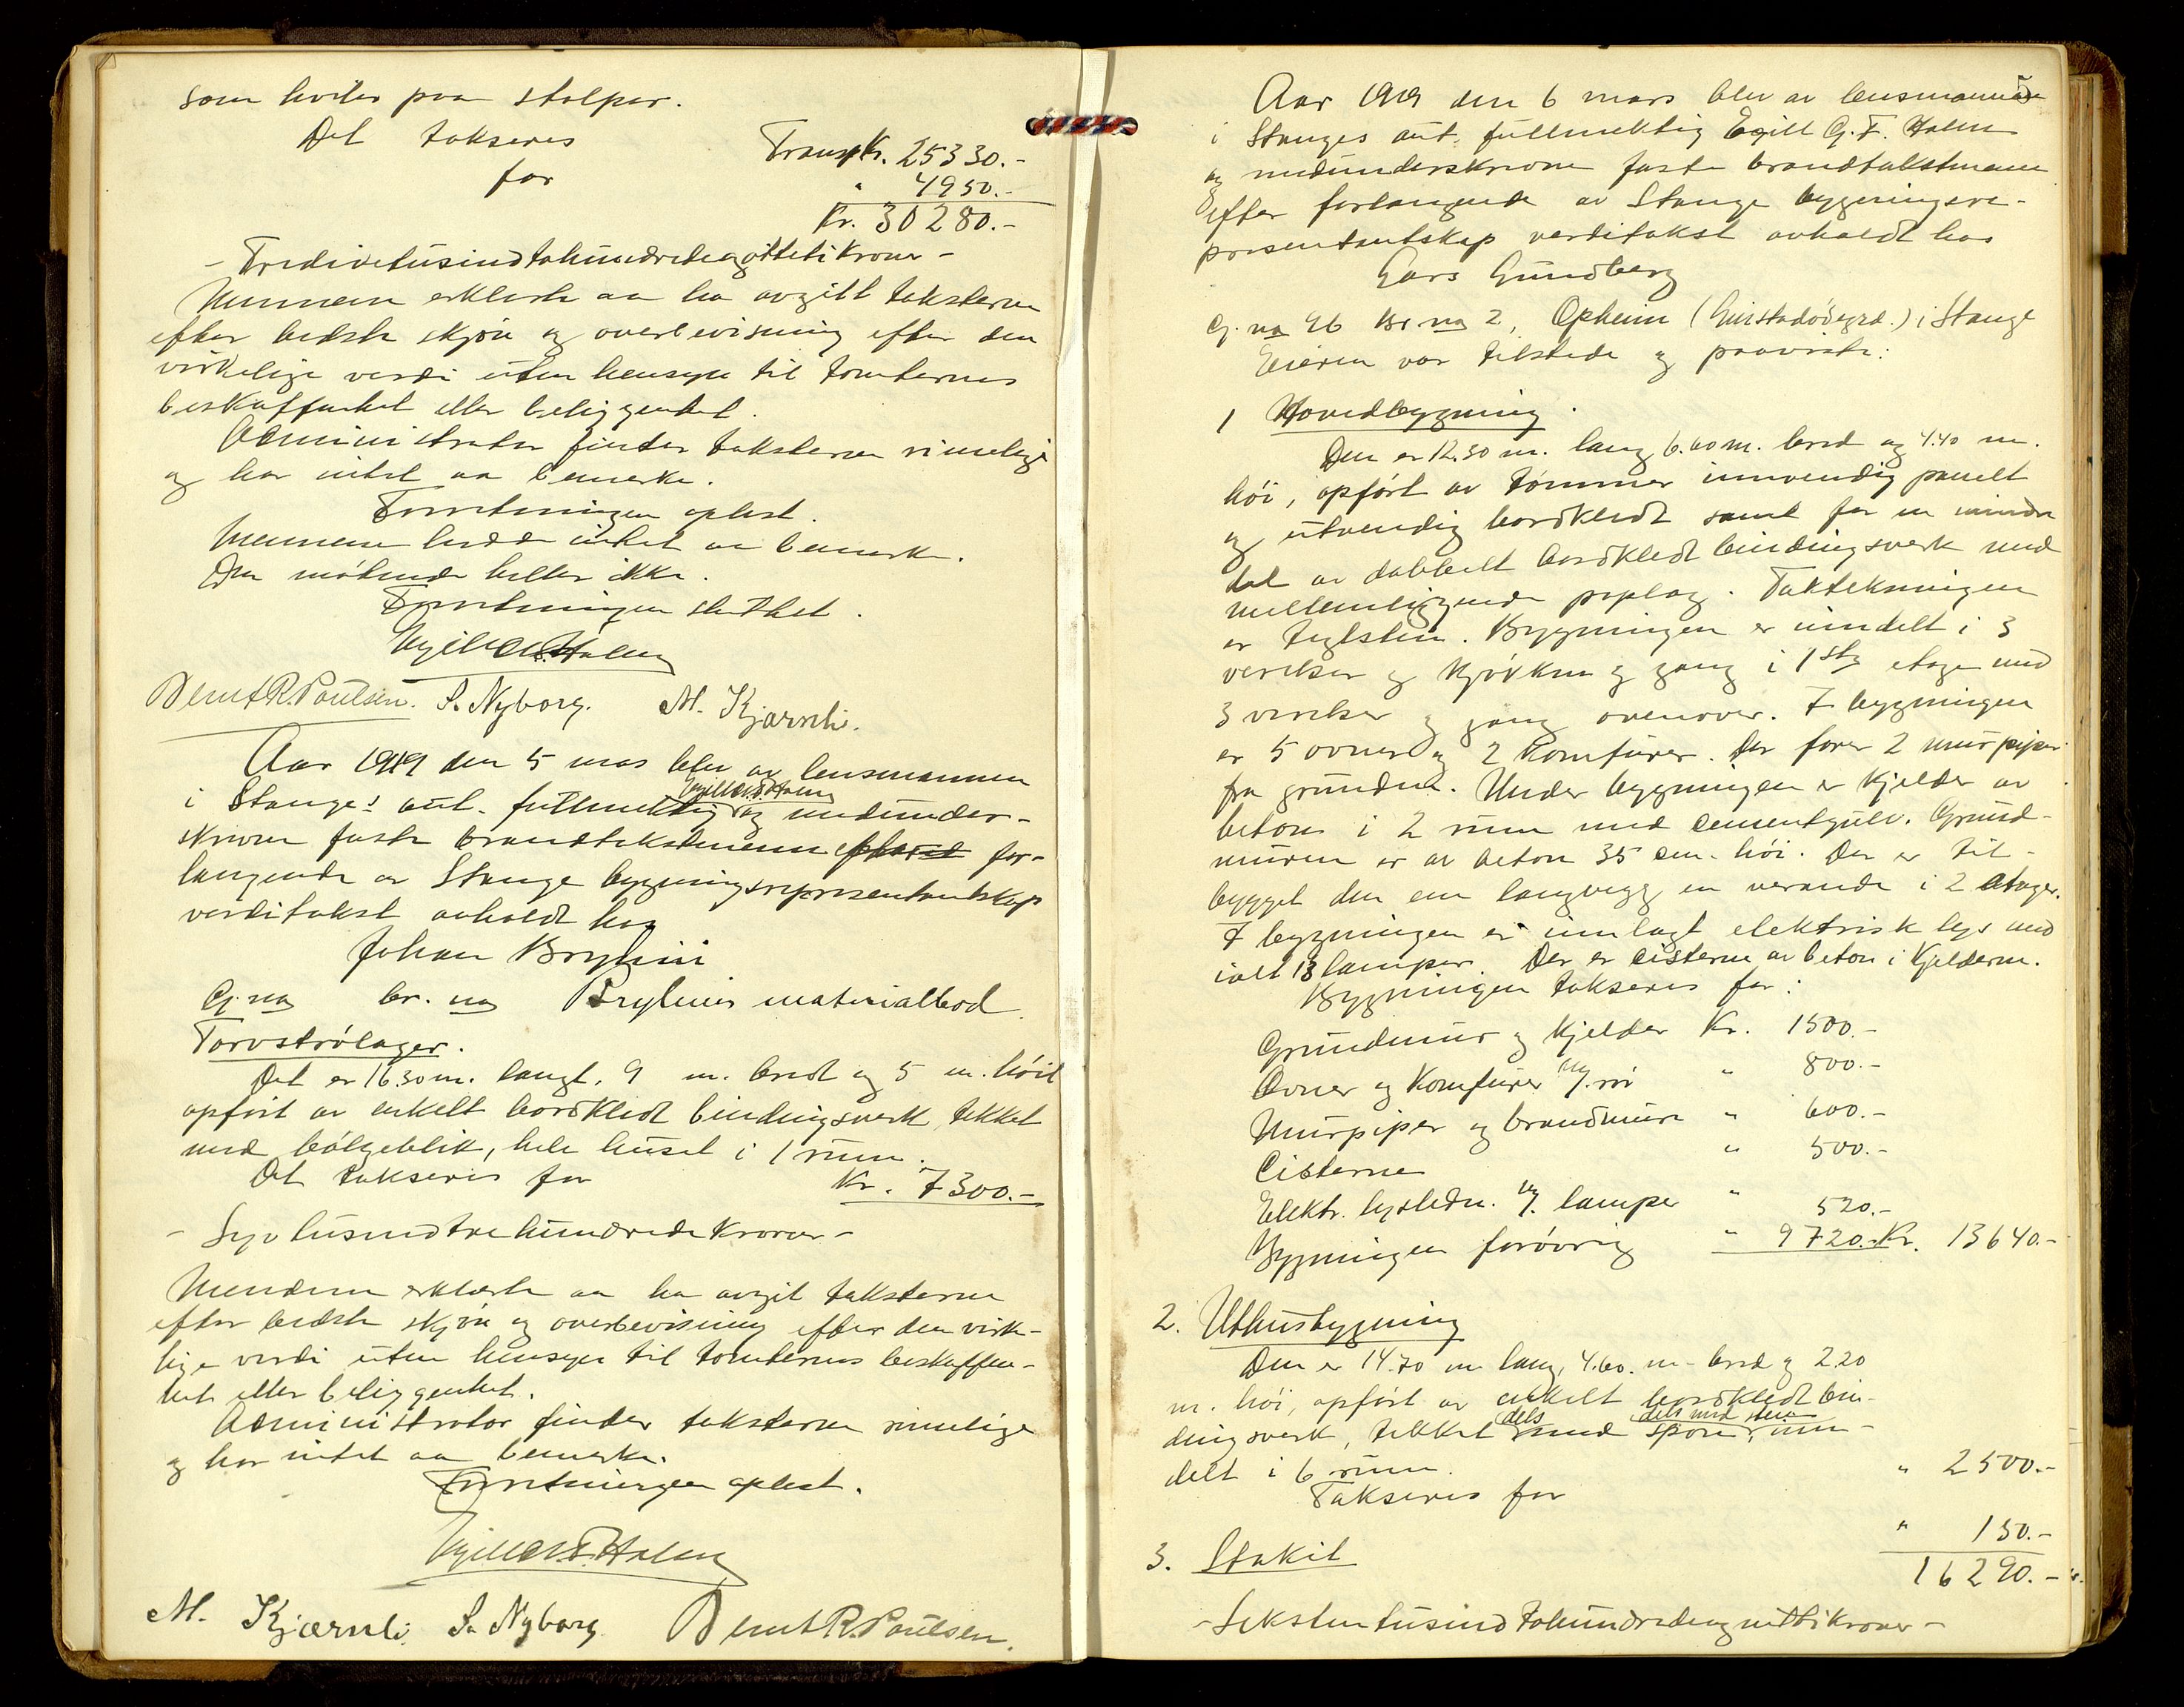 som hviler paa stolper.
Det takseres
for
Transp. Kr. 25330.-
" 4950.-
Kr. 30280.-
- Tredivetusindtohundredeogottetikroner -
Mennene erklærte aa ha avgitt taksterne
efter bedste skjøn og overbevisning efter den
virkelige verdi uten hensyn til tomternes
beskaffenhet eller beliggenhet.
Administrator finder taksterne rimelige
og har intet aa bemerke.
Forretningen oplæst.
Mennene hadde intet aa bemerke.
De møtende heller ikke.
Forretningen sluttet.
Egill G.F. Holm
Bernt R. Paulsen. S. Nyborg. M. Kjærnli.
Aar 1919 den 5 mars blev av lensmannen
Egill G.F. Holm
i Stanges aut. fullmektig og nedunder-
skrevne faste brandtakstmenn efter for-
langende av Stange bygningsrepresentantskap
verditakst avholdt hos
Johan Bryhni
G. no br. no Bryhnis materialbod
Torvstrølager.
Det er 16.30 m. langt, 9 m. bredt og 5 m. høit
opført av enkelt bordklædt bindingsverk, tekket
med bølgeblik, hele huset i 1 rum.
Det takseres for Kr. 7300.-
- Syvtusindtrehundredekroner -
Mendene erklærte aa ha avgit taksterne
efter bedste skjøn og overbevisning efter den virke-
lige verdi uten hensyn til tomternes beskaffen-
het eller beliggenhet.
Administrator finder taksterne rimelige
og har intet aa bemerke.
Forretningen oplest.
Egill G.F. Holm
M. Kjærnli. S. Nyborg. Bernt R. Paulsen.
5
Aar 1919 den 6 mars blev av lensmannen
i Stanges aut. fullmektig Egill G.F. Holm
og nedunderskrevne faste brandtakstmenn
efter forlangende av Stange bygningsre-
presentantskap verditakst avholdt hos
Lars Lundberg
G. no 96 Br. no 2, Opheim () i Stange
Eieren var tilstede og paaviste:
1 Hovedbygning.
Den er 12.50 m. lang 6.60 m. bred og 4.40 m.
høi, opført av tømmer innvendig panelt
og utvendig bordkledt samt for en mindre
del av dobbelt bordkledt bindingsverk med
mellemliggende paplag. Taktekningen
er teglsten. Bygningen er inndelt i 3
verelser og kjøkken og gang i 1ste etage med
3 verelser og gang ovenover. I bygningen
er 5 ovner og 2 komfurer. Der fører 2 murpiper
fra grunden. Under bygningen er kjelder av
beton i 2 rum med cementgulv. Grund-
muren er av beton 35 cm. høi. Der er til-
bygget den ene langvegg en veranda i 2 etager.
I bygningen er innlagt elektrisk lys med
ialt 13 lamper. Der er cisterne av beton i kjelderen.
Bygningen takseres for:
Grundmur og kjelder Kr. 1500.-
Ovner og Komfurer m/ rør " 800.-
Murpiper og brandmure " 600.-
Cisterne " 500.-
Elektr. lysledn. m/. lamper " 520.-
Bygningen forøvrig " 9720.- Kr. 13640.-
2. Uthusbygning
Den er 14.70 m lang, 4.60. m - bred og 2.20
m. høi, opført av enkelt bordkledt bin-
dels dels med sten
dingsverk, tekket med spon, inn-
delt i 6 rum.
Takseres for " 2500.-
3. Stakit " 150.-
16290.-
- Sekstentusindtohundredeognittikroner -